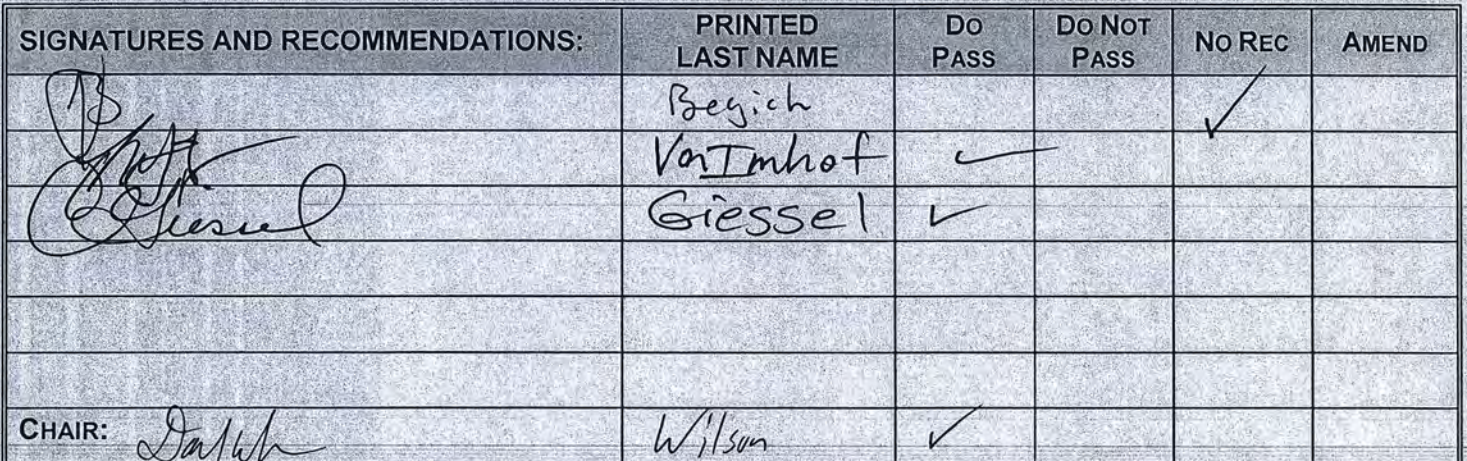 SIGNATURES AND RECOMMENDATIONS: PRINTED LAST NAME DO PASS DO NOT PASS NO REC AMEND
Begich ✓
VonImhof ✓
Giessel Giessel ✓
CHAIR: Wilson ✓